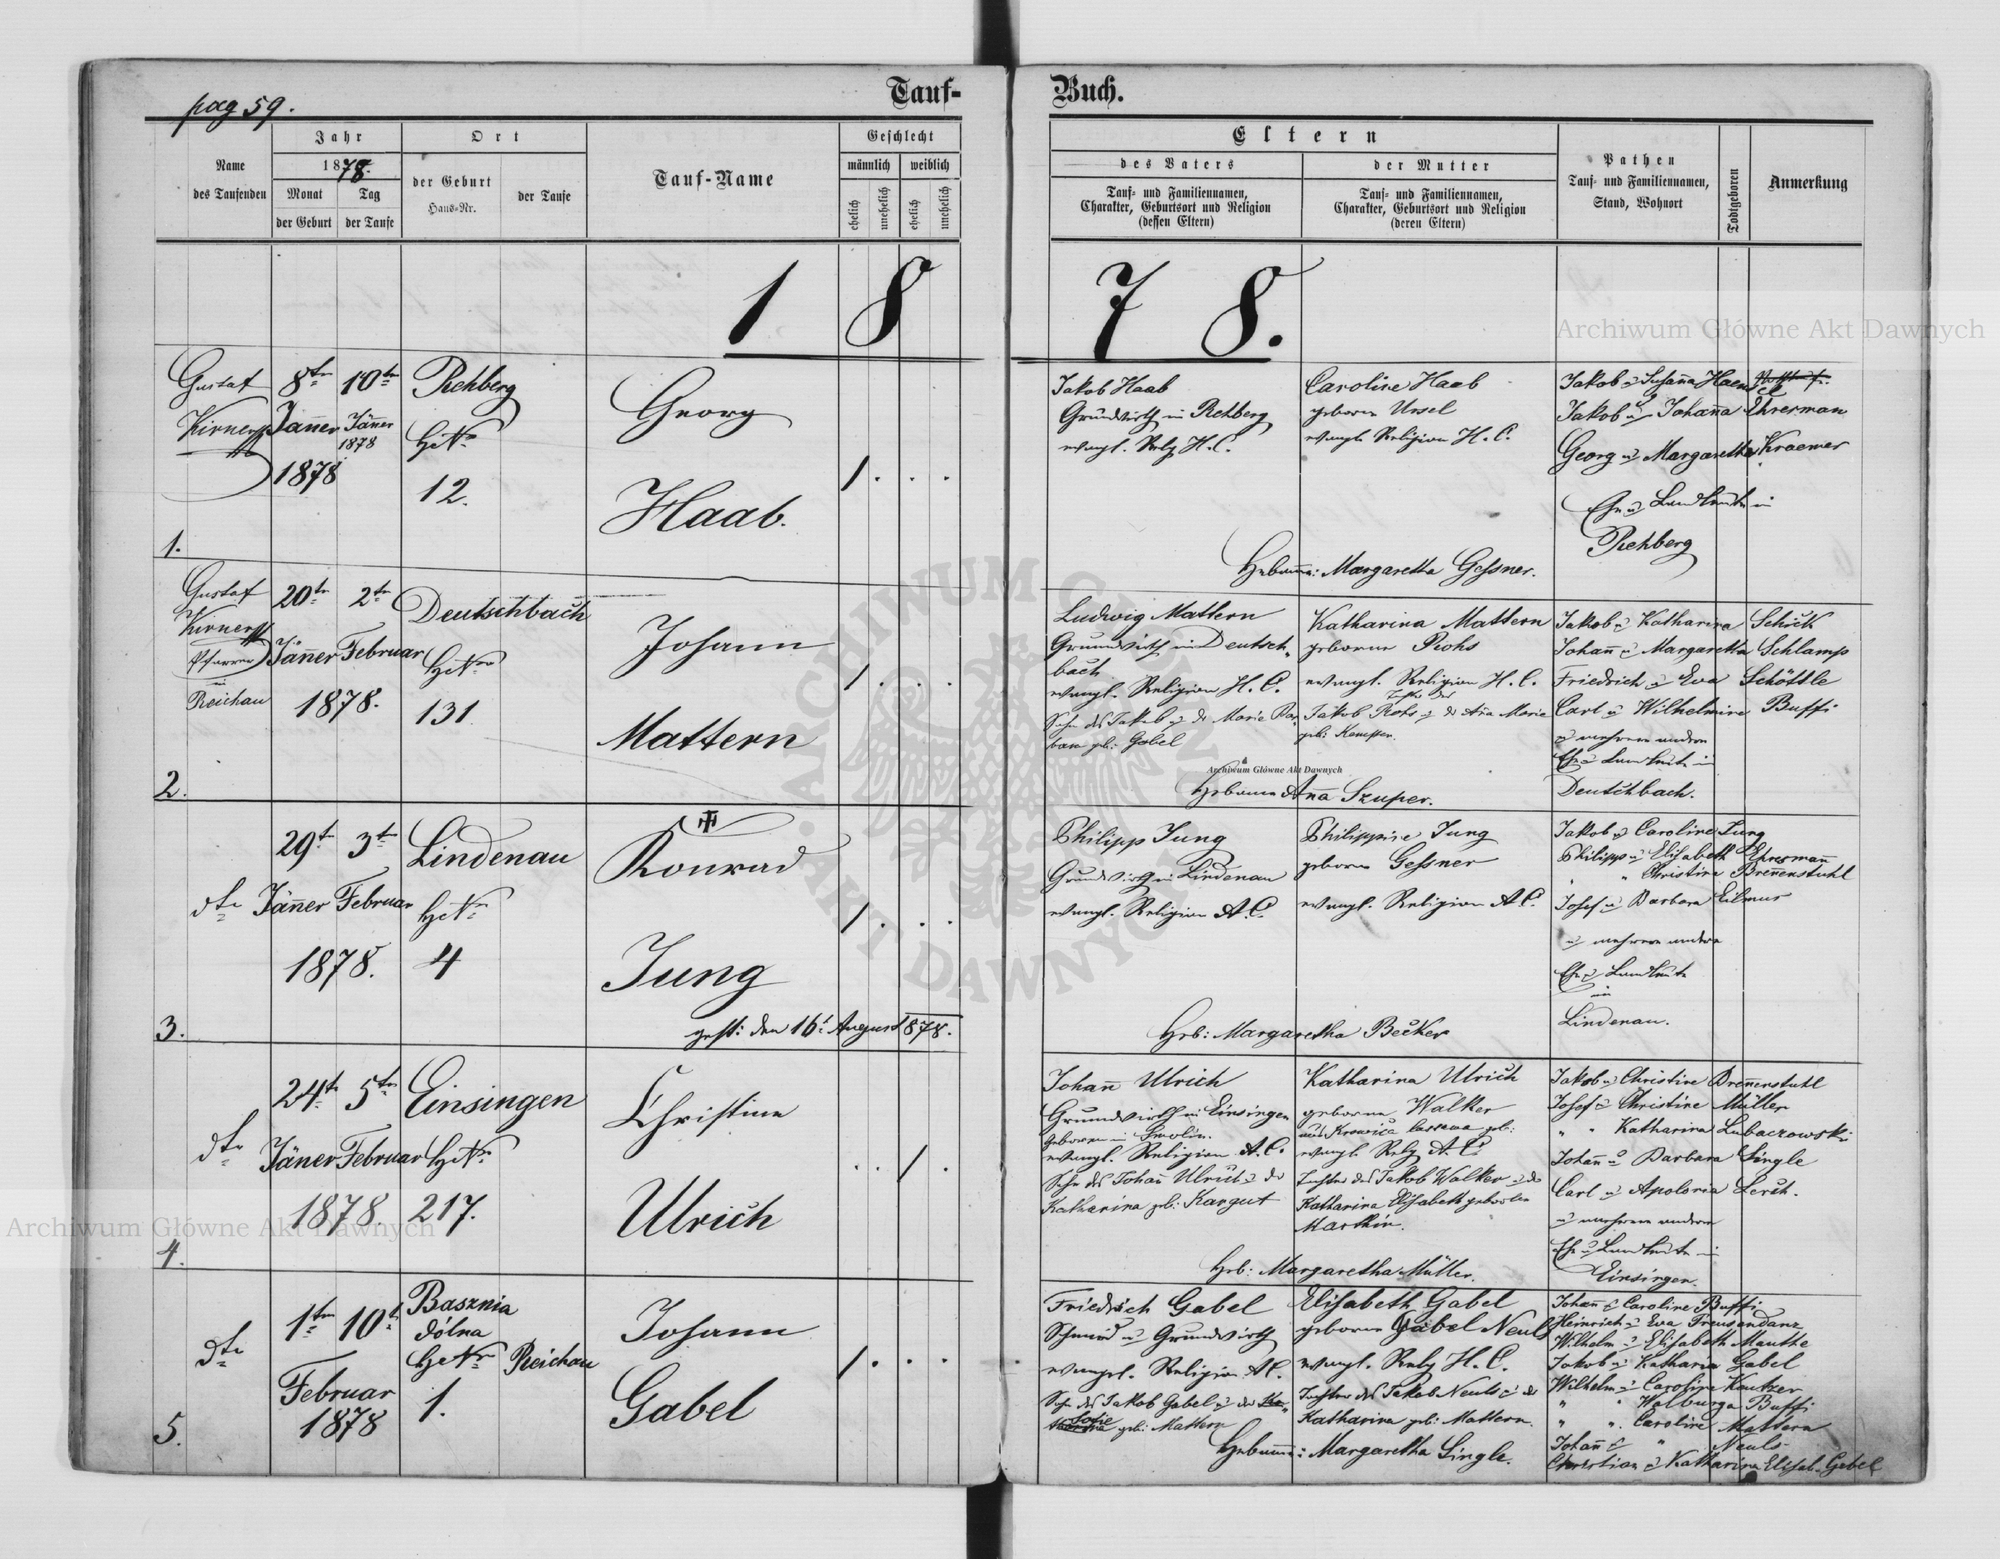 pag 59.
Tauf-
Buch.
Name
des Taufenden
Jahr
1878.
Monat
der Geburt
Tag
der Taufe
Ort
der Geburt
Haus-Nr.
der Taufe
Tauf-Name
Geschlecht
männlich
weiblich
ehelich
unehelich
ehelich
unehelich
Eltern
des Vaters
Tauf- und Familiennamen,
Charakter, Geburtsort und Religion
(dessen Eltern)
der Mutter
Tauf- und Familiennamen,
Charakter, Geburtsort und Religion
(deren Eltern)
Pathen
Tauf- und Familiennamen,
Stand, Wohnort
Todtgeboren
Anmerkung
1 8 7 8.
Archiwum Główne Akt Dawnych
1.
Gustaf
Kirner
8ten
Jänner
1878
10ten
Jänner
1878
Rehberg
HsNro
12.
Georg
Haab.
1 . . .
Jakob Haab
Grundwirth in Rehberg
evangl. Relg H. C.
Caroline Haab
geborene Ursel
evangl. Religion H. C.
Jakob u Susanna Haenel
Jakob u Johanna Ehresman
Georg u Margaretha Kraemer
Ehe u Landleute in
Rehberg
Hebamme: Margaretha Gessner.
2.
Gustaf
Kirner
Pfarrer
in
Reichau
20ten 2ten
Jänner Februar
1878.
Deutschbach
HsNro
131
Johann
Mattern
1 . . .
Ludwig Mattern
Grundwirth in Deutsch„
bach
evangl. Religion H. C.
Sohn des Jakob u der Marie Bar„
bara geb: Gabel
Katharina Mattern
geborene Rohs
evangl. Religion H. C.
Tochter des
Jakob Rohs u der Anna Marie
geb: Kempfer.
Jakob u Katharina Schick
Johann u Margaretha Schlamp
Friedrich u Eva Schöttle
Carl u Wilhelmine Buffi
u mehrere andere
Ehe u Landleute in
Deutschbach.
Archiwum Główne Akt Dawnych
Hebamme Anna Szuper.
3.
dto
29t 3t
Jänner Februar
1878.
Lindenau
HsNro
4
Konrad
Jung
gest: den 16t August 1878.
1 . . .
Philipp Jung
Grundwirth in Lindenau
evangl. Religion A. C.
Philippine Jung
geborene Gessner
evangl. Religion A. C.
Jakob u Caroline Jung
Philipp u Elisabeth Ehresmann
„ „ Christine Brennenstuhl
Josef u Barbara Eilmes
u mehrere andere
Ehe u Landleute
in
Lindenau.
Heb: Margaretha Becker
4.
dto
24t 5ten
Jäner Februar
1878.
Einsingen
HsNro
217.
Christine
Ulrich
. . 1 .
Johann Ulrich
Grundwirth in Einsingen
geboren in Smolin.
evangl. Religion A. C.
Sohn des Johann Ulrich u der
Katharina geb: Kargut
Katharina Ulrich
geborene Walker
aus Krowica lassowa geb:
evangl. Relg A. C.
Tochter des Jakob Walker u der
Katharina Elisabeth geborten
Marthin.
Jakob u Christine Brennenstuhl
Josef u Christine Müller
„ „ Katharina Lubaczowski
Johann u Barbara Single
Carl u Apolonia Lerch.
u mehrere andere
Ehe u Landleute in
Einsingen.
Heb: Margaretha Müller.
Archiwum Główne Akt Dawnych
5.
dto
1ten 10t
Februar
1878
Basznia
dólna
HsNro
1.
Reichau
Johann
Gabel
1 . . .
Friedrich Gabel
Schmied u Grundwirth
evangel. Religion A. C.
Sohn des Jakob Gabel u der
Sofie geb: Mattern
Elisabeth Gabel
geborene Gabel Neuls
evangl. Relg H. C.
Tochter des Jakob Neuls u der
Katharina geb: Mattern.
Johann u Caroline Buffi
Heinrich u Eva Freusandanz
Wilhelm u Elisabeth Mauthe
Jakob u Katharia Gabel
Wilhelm u Caroline Kautzer
„ „ Walburga Buffi
„ „ Caroline Mattern
Johann u „ Neuls
Christian u Katharina Elisab. Gabel
Hebamme: Margaretha Single.
ARCHIWUM GŁÓWNE AKT DAWNYCH